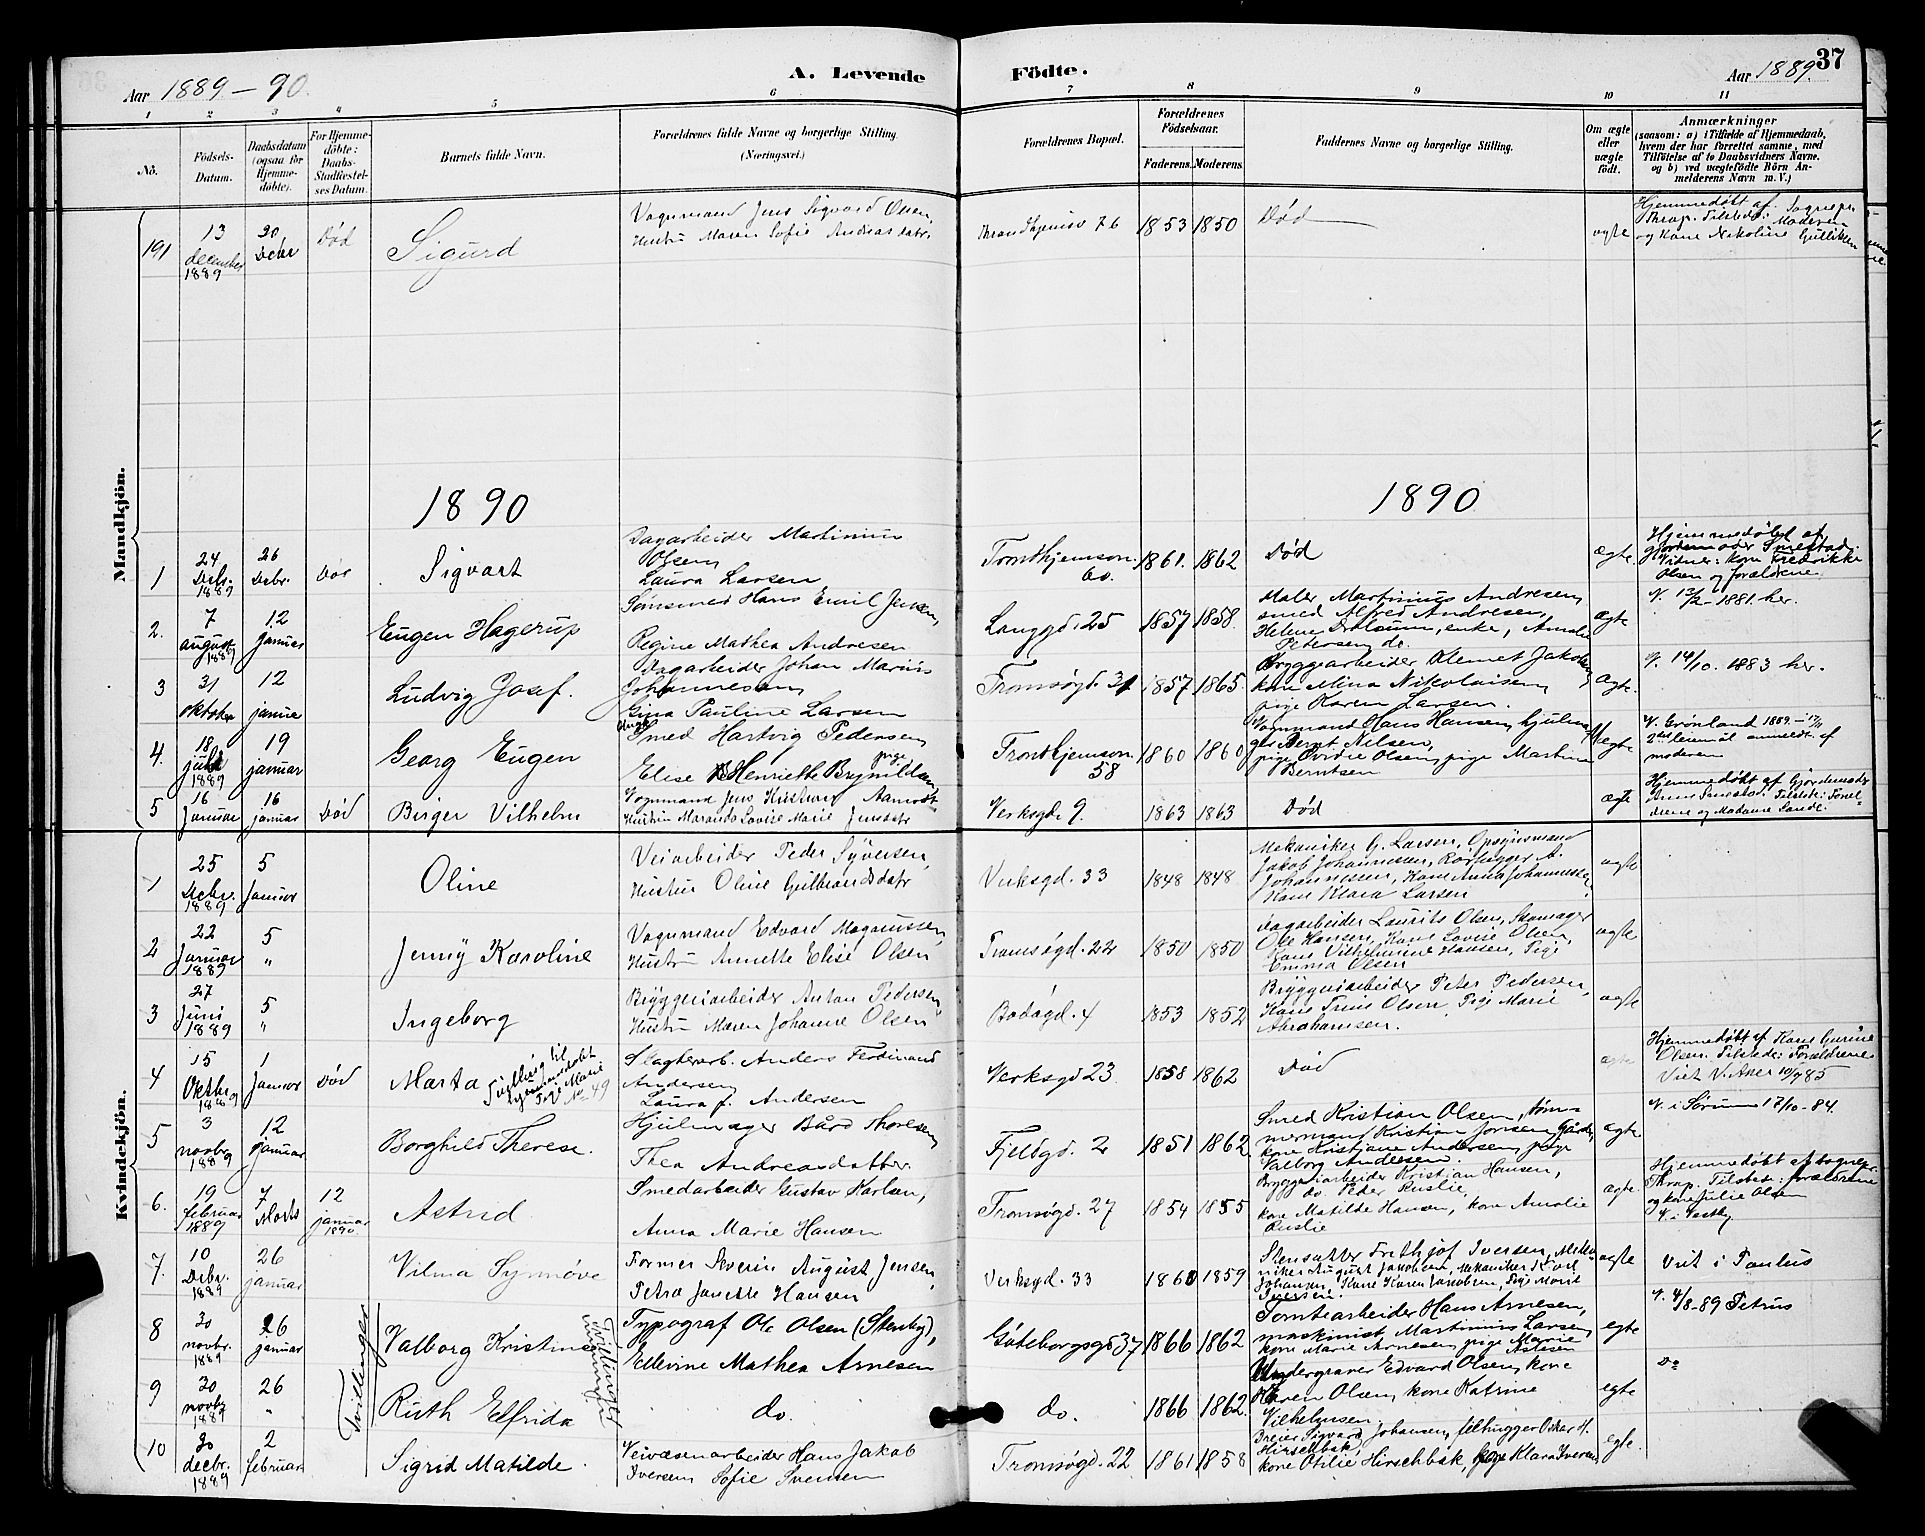 Aar 1889-90.
A. Levende Födte.
Aar 1889.
37
1 2 3 4 5 6 7 8 9 10 11
No.
Födsels-Datum.
Daabsdatum (ogsaa for Hjemmedöbte).
For Hjemmedöbte: Daabs-Stadfæstelses Datum.
Barnets fulde Navn.
Forældrenes fulde Navne og borgerlige Stilling. (Næringsvei.)
Forældrenes Bopæl.
Forældrenes Födselsaar.
Faderens. Moderens.
Faddernes Navne og borgerlige Stilling.
Om ægte eller uægte födt.
Anmærkninger
(saasom: a) i Tilfælde af Hjemmedaab, hvem der har forrettet samme, med Tilföielse af to Daabsvidners Navne. og b) ved uægtefödte Börn Anmelderens Navn m. V.)
Mandkjön.
191 13 december 1889 30 Decbr Död Sigurd
Vognmand Jens Sigvard Olsen,
Hustru Maren Sofie Andreasdatr.
76 1853 1850 Död ægte
Hjemmedöbt af Sognepr.
Thrap. Tilstede: Moderen
og Kone Nikoline Gulliksen
1890
1890
1 24 Decbr. 1889 26 Decbr. Död Sigvart
Dagarbeider Martinius
Olsen
Laura Larsen
Trondhjemsvn. 60. 1861. 1862 Död ægte
Hjemmedöbt af
gjordemoder Smestad.
Vidner: kone Fredrikke
Olsen og forældrene.
2. 7 august 1889 12 Januar Eugen Hagerup
Sömsmed Hans Emil Jensen,
Regine Mathea Andresen
Langgd. 25 1857 1858.
Maler Martinius Andresen,
smed Alfred Andresen,
Helene enke, Amalie
Petersen do.
ægte
V. 13/2 - 1881. her.
3 31 oktober 12 januar Ludvig Josef.
Dagarbeider Johan Marius
Johannesen,
Gina Pauline Larsen
Tromsögd. 31 1857 1865.
Bryggearbeider Klemet Jakobsen
kone Mina Nikolaisen,
pige Karen Larsen.
ægte.
V. 14/10. 1883 her.
4. 18 juli 1889 19 januar Georg Eugen
Smed Hartvig Pedersen,
Elise Henriette Brynildsen pige
Trondhjemsvn. 58 1860 1860
Vognmand Hans Hansen, hjulmager
Bernt Nilsen,
pige Ovidie Olsen, pige Martine
Berntsen
Uægte
V. Grönland 1889.
2det leiemål anmeldt af
moderen
5 16 Januar 16 januar Död Birger Vilhelm
Vognmand Jens Kristian Aamodt
Hustru Maranda Lovise Marie Jensdatr
Verksgd. 9. 1863 1863 Död ægte
Hjemmedöbt af Gjordemoder
Smestad. Tilstede: Forældrene
og Madame Sande.
Kvindekjön.
1 25 Decbr. 1889 5 Januar Oline
Veiarbeider Peder Syversen,
Hustru Oline Gulbrandsdatr
Verksgd. 33 1848 1848
Mekaniker G. Larsen, Opsynsmand
Jakob Johannessen, Rörlægger A.
Johannessen, Kone Anna Johannessen,
Kone Klara Larsen
ægte
2 22 Januar 1889 5 " Jenny Karoline
Vognmand Edvard Magnussen,
Hustru Annette Elise Olsen
Tromsögd. 22 1850 1850
Dagarbeider Laurits Olsen, Skomager
Ole Hansen, Kone Lovise Olsen,
Kone Vilhelmine Hansen, Pige
Emma Olsen
ægte
3 27 Juni 1889 5 " Ingeborg
Bryggeriarbeider Anton Pedersen,
Hustru Maren Johanne Olsen
Bodögd. 4 1853 1852
Bryggeriarbeider Peter Pedersen,
Kone Trine Olsen, Pige Marie
Abrahamsen.
ægte
4 15 Oktbr. 1889 1 Januar Död Marta
Tvilling til
hjemmedöbt
Marie
No 49
Slagterarb. Anders Ferdinand
Andersen
Laura f. Andersen
Verksgd 23. 1858 1862 Död ægte
Hjemmedöbt af Kone Gurine
Olsen. Tilstede: Forældrene
Viet V. Aker 10/7 85
5 3 novbr 1889 12 januar Borghild Therese.
Hjulmager Bård Thoresen,
Thea Andreasdatter.
Fjeldgd. 2 1851 1862.
Smed Kristian Olsen, töm-
mermand Kristian Jonsen
kone Kristiane Andersen, pige
Valborg Andersen.
ægte
V. i Sörum 17/10 - 84.
6. 19 februar 1889 7 Marts 12 januar 1890. Astrid
Smedarbeider Gustav Karlsen,
Anna Marie Hansen
Tromsögd. 27 1854 1855
Bryggeriarbeider Kristian Hansen,
do. Peder Ruslie,
kone Matilde Hansen, kone Amalie
Ruslie
ægte
Hjemmedöbt af sognepr.
Thrap. Tilstede: forældrene
og kone Julie Olsen
V. i Vestby
7. 10 Decbr. 1889 26 januar Vilma Synnöve
Former Severin August Jensen,
Petra Janette Hansen
Verksgd. 33 1860 1859
Stensætter Frithjof Iversen, Meka-
niker August Jakobsen, Mekaniker Karl
Johansen, Kone Karen Jakobsen, Pige Marit
Iversen.
ægte
Viet i Paulus
8 30 novbr. 1889 26 januar Tvillinger Valborg Kristine
Typograf Ole Olsen (Stenby),
Ellevine Mathea Arnesen
Göteborgsgd 37 1866 1862
Tomtearbeider Hans Arnesen,
maskinist Martinius Larsen,
kone Marie Arnesen, pige Marie
ægte
V. 4/8 - 89 Petrus
9 30 novbr 1889 26 " Ruth Elfrida
do. do. 1866 1862.
Undergraver Edvard Olsen, kone
Karen Olsen, kone Katrine
Vilhelmsen.
ægte
Do
10 30 decbr. 1889 2 februar Sigrid Matilde.
Veivæsenarbeider Hans Jakob
Iversen Sofie Svensen
Tromsögd. 22 1861 1858
Dreier Sigvard Johansen, filhugger Oskar H.
Hirschbak,
kone Otilie Hirschbak, pige Klara Iversen
ægte.